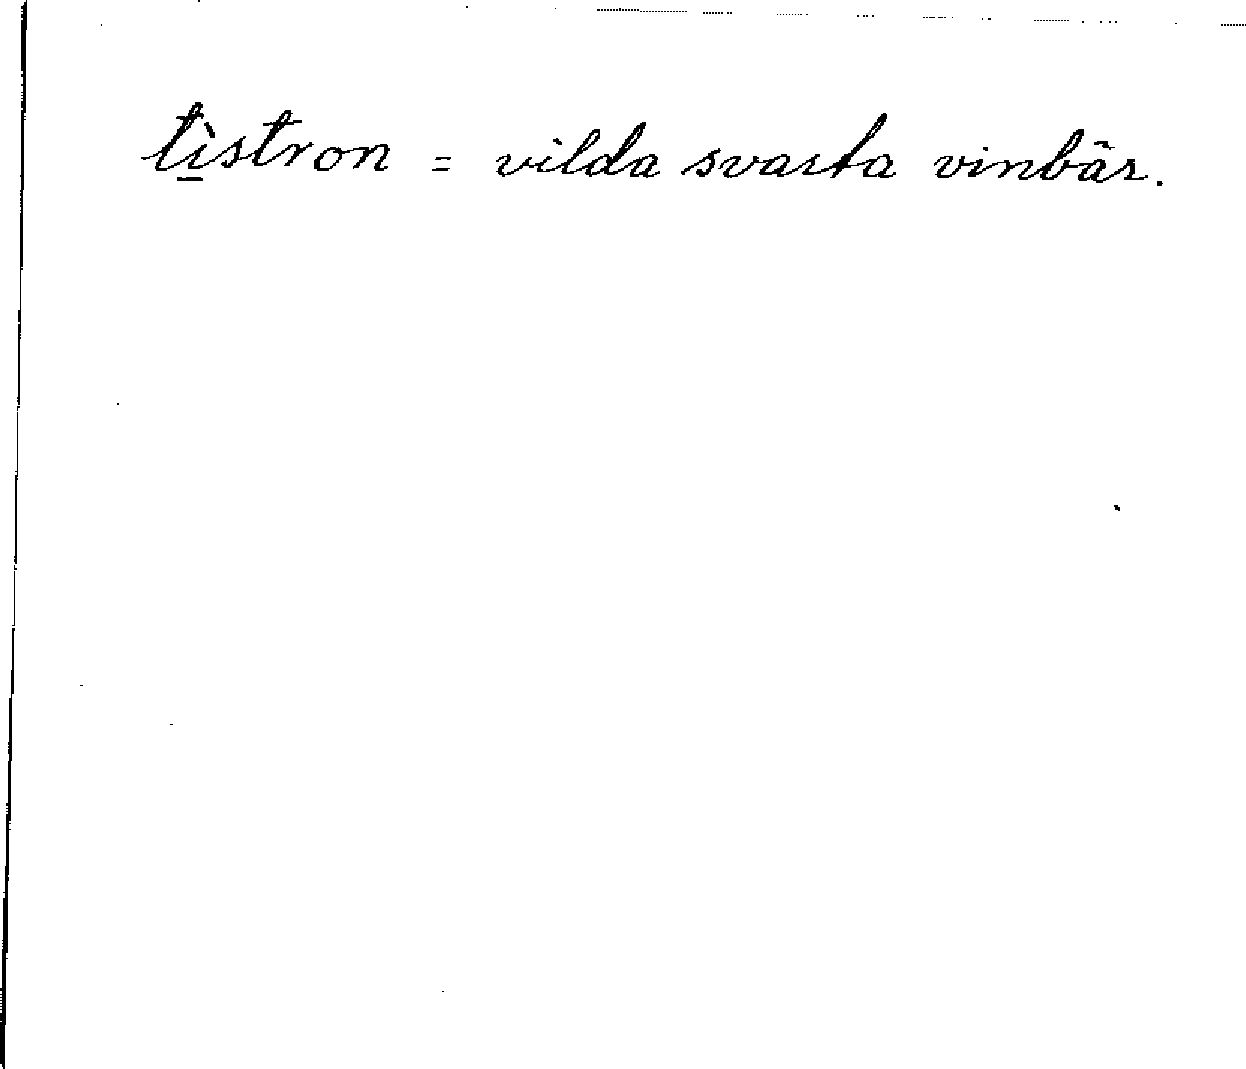 tìstron = vilda svarta vinbär.